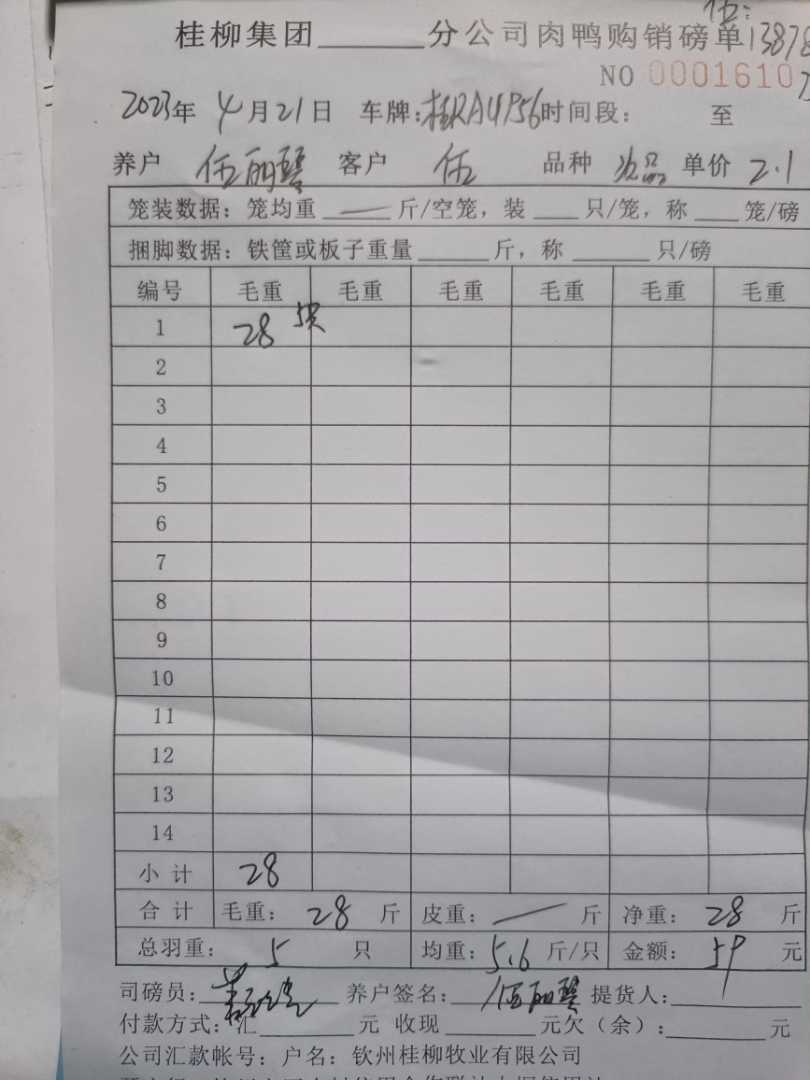 伍:
桂柳集团______分公司肉鸭购销磅单 13878
NO 0001610
2023年 4月21日 车牌:桂RA4956 时间段: 至
养户 伍丽琴 客户 伍 品种 次品 单价 2.1
笼装数据: 笼均重 — 斤/空笼, 装___只/笼, 称___笼/磅
捆脚数据: 铁筐或板子重量_____斤, 称_____只/磅
编号 毛重 毛重 毛重 毛重 毛重 毛重
1 28 5只
2
3
4
5
6
7
8
9
10
11
12
13
14
小计 28
合计 毛重: 28 斤 皮重: — 斤 净重: 28 斤
总羽重: 5 只 均重: 5.6 斤/只 金额: 59 元
司磅员: 养户签名: 伍丽琴 提货人:
付款方式: 汇______元 收现______元 欠(余):______元
公司汇款帐号: 户名: 钦州桂柳牧业有限公司